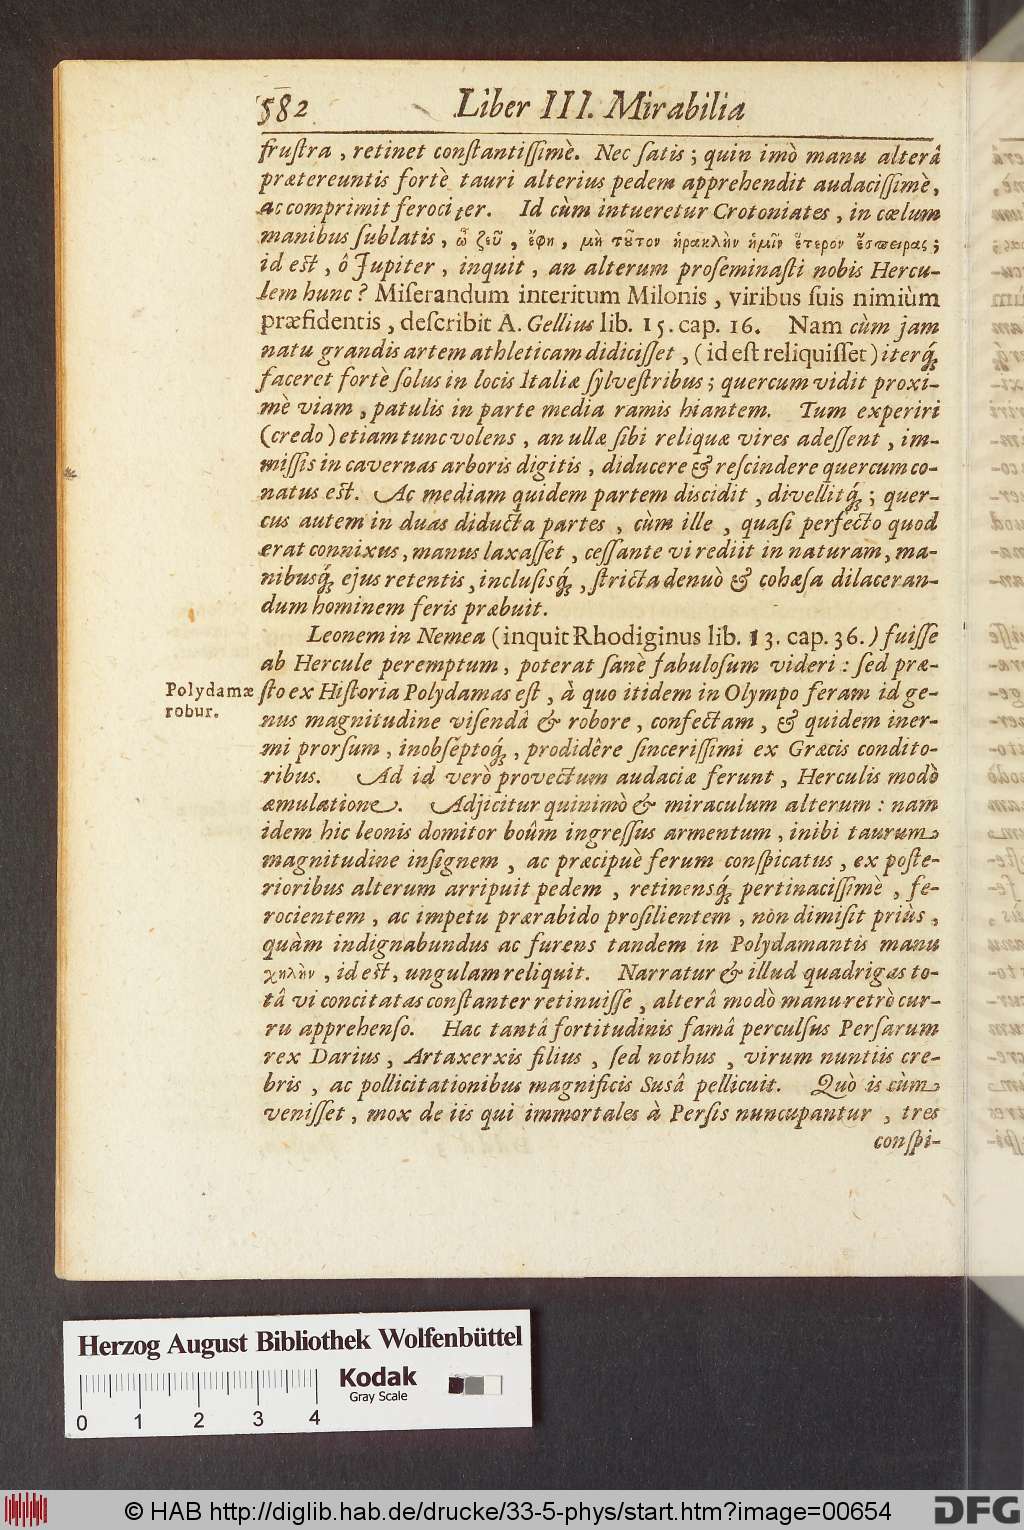 582 Liber III. Mirabilia
fruſtra, retinet conſtantiſſimè. Nec ſatis; quin imò manu alterâ
prætereuntis fortè tauri alterius pedem apprehendit audaciſſimè,
ac comprimit ferociter. Id cùm intueretur Crotoniates, in cœlum
manibus ſublatis, ὦ ζεῦ, ἔφη, μὴ τȣ͂τον ἡρακλὴν ἡμῖν ἕτερον ἔσπειρας;
id eſt, ô Jupiter, inquit, an alterum proſeminaſti nobis Hercu-
lem hunc? Miſerandum interitum Milonis, viribus ſuis nimiùm
præfidentis, deſcribit A. Gellius lib. 15. cap. 16. Nam cùm jam
natu grandis artem athleticam didiciſſet, (id eſt reliquiſſet) iterq́;
faceret fortè ſolus in locis Italiæ ſylveſtribus; quercum vidit proxi-
mè viam, patulis in parte media ramis hiantem. Tum experiri
(credo) etiam tunc volens, an ullæ ſibi reliquæ vires adeſſent, im-
miſſis in cavernas arboris digitis, diducere & reſcindere quercum co-
natus eſt. Ac mediam quidem partem diſcidit, divellitq́;; quer-
cus autem in duas diducta partes, cùm ille, quaſi perfecto quod
erat connixus, manus laxaſſet, ceſſante vi rediit in naturam, ma-
nibusq́; ejus retentis, incluſisq́;, ſtricta denuò & cohæſa dilaceran-
dum hominem feris præbuit.
Leonem in Nemea (inquit Rhodiginus lib. 13. cap. 36.) fuiſſe
ab Hercule peremptum, poterat ſanè fabuloſum videri: ſed præ-
Polydamæ
robur.
ſto ex Hiſtoria Polydamas eſt, à quo itidem in Olympo feram id ge-
nus magnitudine viſendâ & robore, confectam, & quidem iner-
mi prorſum, inobſeptoq́;, prodidêre ſinceriſſimi ex Græcis condito-
ribus. Ad id verò provectum audaciæ ferunt, Herculis modò
æmulatione. Adjicitur quinimò & miraculum alterum: nam
idem hic leonis domitor boûm ingreſſus armentum, inibi taurum
magnitudine inſignem, ac præcipuè ferum conſpicatus, ex poſte-
rioribus alterum arripuit pedem, retinensq́; pertinaciſſimè, fe-
rocientem, ac impetu prærabido proſilientem, non dimiſit priùs,
quàm indignabundus ac furens tandem in Polydamantis manu
χηλὴν, id eſt, ungulam reliquit. Narratur & illud quadrigas to-
tâ vi concitatas conſtanter retinuiſſe, alterâ modò manu retrò cur-
ru apprehenſo. Hac tantâ fortitudinis famâ perculſus Perſarum
rex Darius, Artaxerxis filius, ſed nothus, virum nuntiis cre-
bris, ac pollicitationibus magnificis Susâ pellicuit. Quò is cùm
veniſſet, mox de iis qui immortales à Perſis nuncupantur, tres
conſpi-
Herzog August Bibliothek Wolfenbüttel
Kodak
Gray Scale
0 1 2 3 4
© HAB http://diglib.hab.de/drucke/33-5-phys/start.htm?image=00654
DFG